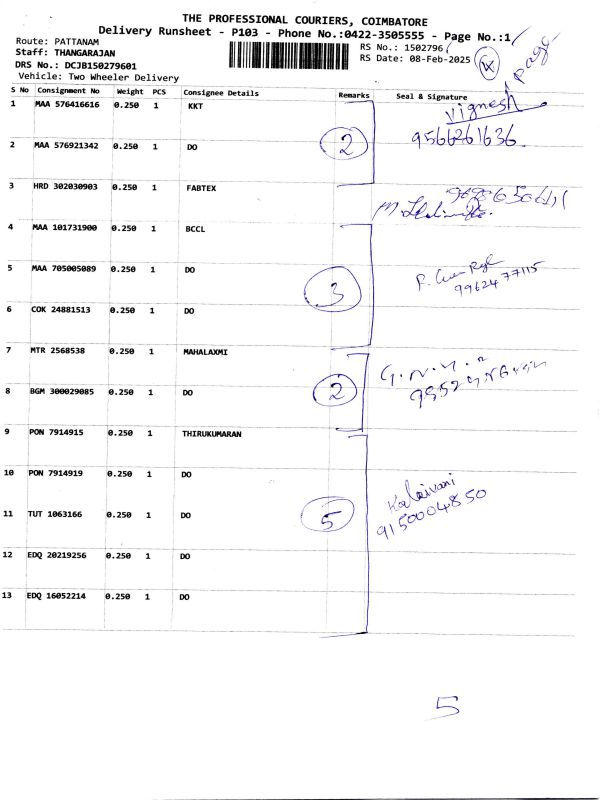 THE PROFESSIONAL COURIERS, COIMBATORE
Delivery Runsheet - P103 - Phone No.:0422-3505555 - Page No.:1
page
Route: PATTANAM
RS No.: 1502796
Staff: THANGARAJAN
RS Date: 08-Feb-2025
DRS No.: DCJB150279601
Vehicle: Two Wheeler Delivery
S No Consignment No Weight PCS Consignee Details Remarks Seal & Signature
1 MAA 576416616 0.250 1 KKT
Vignesh
9566261636
2 MAA 576921342 0.250 1 DO
2
3 HRD 302030903 0.250 1 FABTEX
M.
4 MAA 101731900 0.250 1 BCCL
5 MAA 705005089 0.250 1 DO
3
9962477115
6 COK 24881513 0.250 1 DO
7 MTR 2568538 0.250 1 MAHALAXMI
8 BGM 300029085 0.250 1 DO
2
9 PON 7914915 0.250 1 THIRUKUMARAN
10 PON 7914919 0.250 1 DO
Kalaivani
9150004850
11 TUT 1063166 0.250 1 DO
5
12 EDQ 20219256 0.250 1 DO
13 EDQ 16052214 0.250 1 DO
5